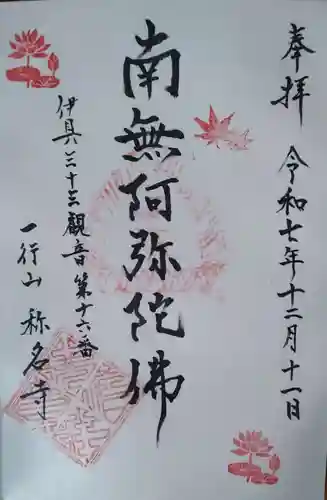 奉拝 令和七年十二月十一日
南無阿弥陀佛
伊具三十三観音第十六番
一行山 称名寺